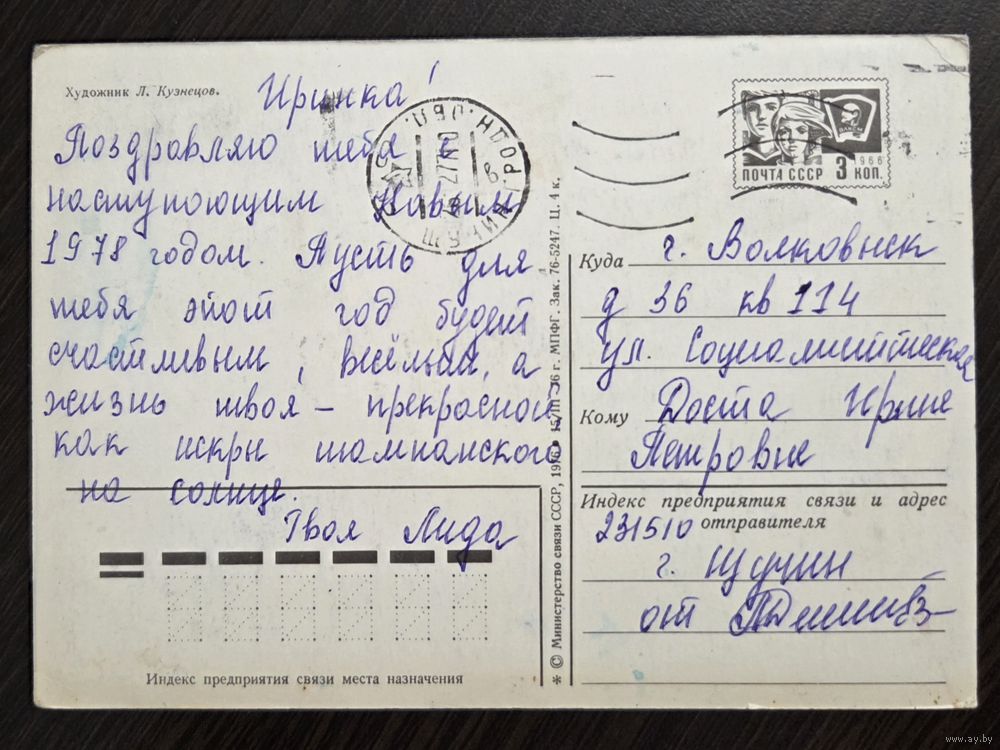 Художник Л. Кузнецов.
Иринка!
Поздравляю тебя с
наступающим Новым
1978 годом. Пусть для
тебя этот год будет
счастливым, весёлым, а
жизнь твоя – прекрасной
как искры шампанского
на солнце.
Твоя Лида
Индекс предприятия связи места назначения
* © Министерство связи СССР, 1976 • 15/III-76 г. МПФГ. Зак. 76-5247. Ц. 4 к.
ВЛКСМ
1966
ПОЧТА СССР 3 КОП.
Куда г. Волковыск
д 36 кв 114
ул. Социалистическая
Кому Доста Ирине
Петровне
Индекс предприятия связи и адрес
отправителя
231510
г. Щучин
от
www.ay.by